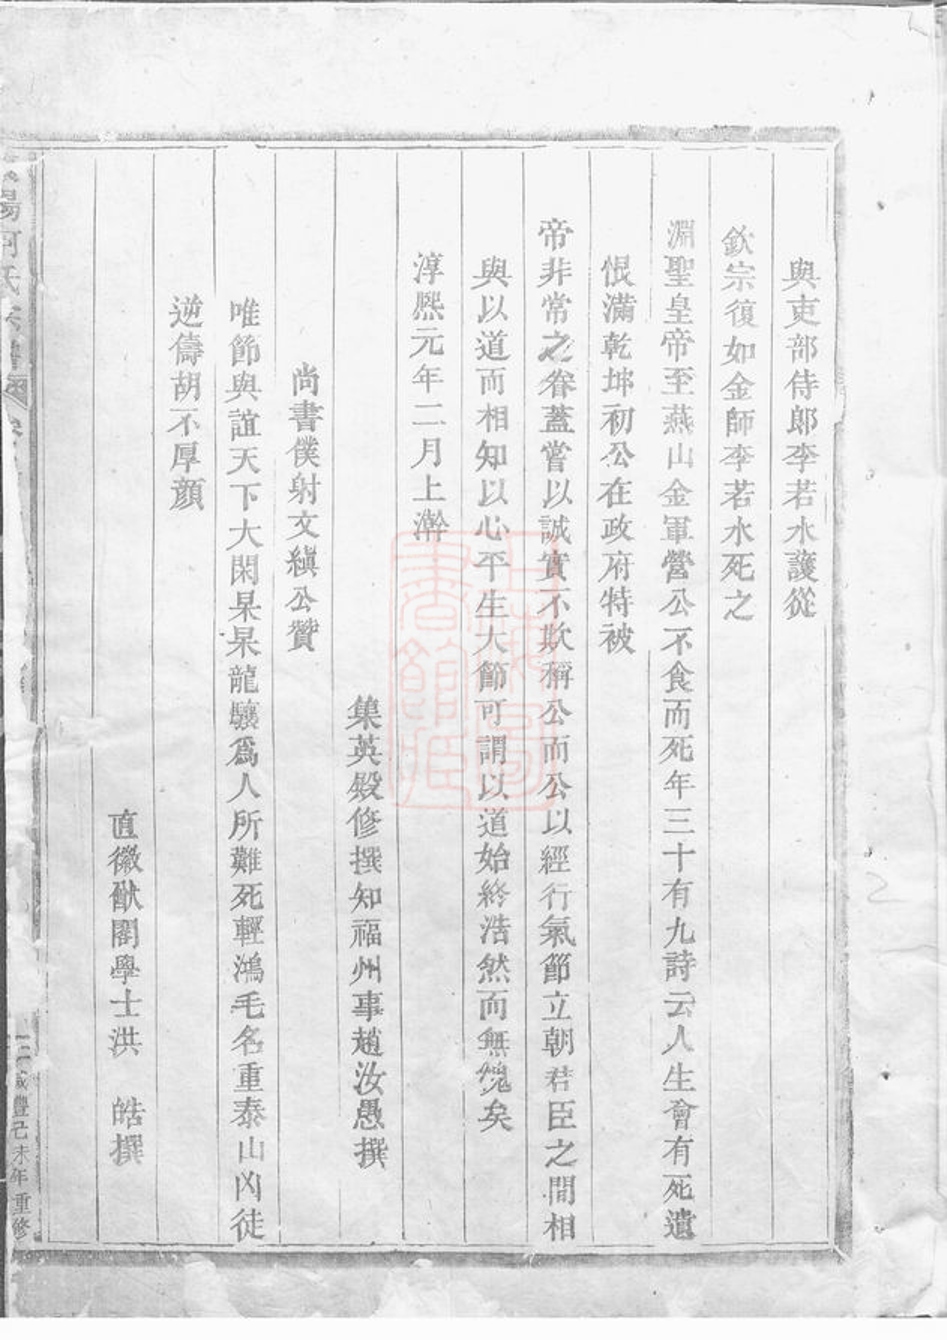 與吏部侍郎李若水護從
欽宗復如金師李若水死之
淵聖皇帝至燕山金軍營公不食而死年三十有九詩云人生會有死遺
恨滿乾坤初公在政府特被
帝非常之眷蓋嘗以誠實不欺稱公而公以經行氣節立朝君臣之間相
與以道而相知以心平生大節可謂以道始終浩然而無愧矣
淳熙元年二月上澣
集英殿修撰知福州事趙汝愚撰
尚書僕射文縝公贊
唯節與誼天下大閑杲杲龍驤爲人所難死輕鴻毛名重泰山凶徒
逆儔胡不厚顔
直徽猷閣學士洪　皓撰
陽何氏宗譜
咸豐己未年重修
上海圖書館藏